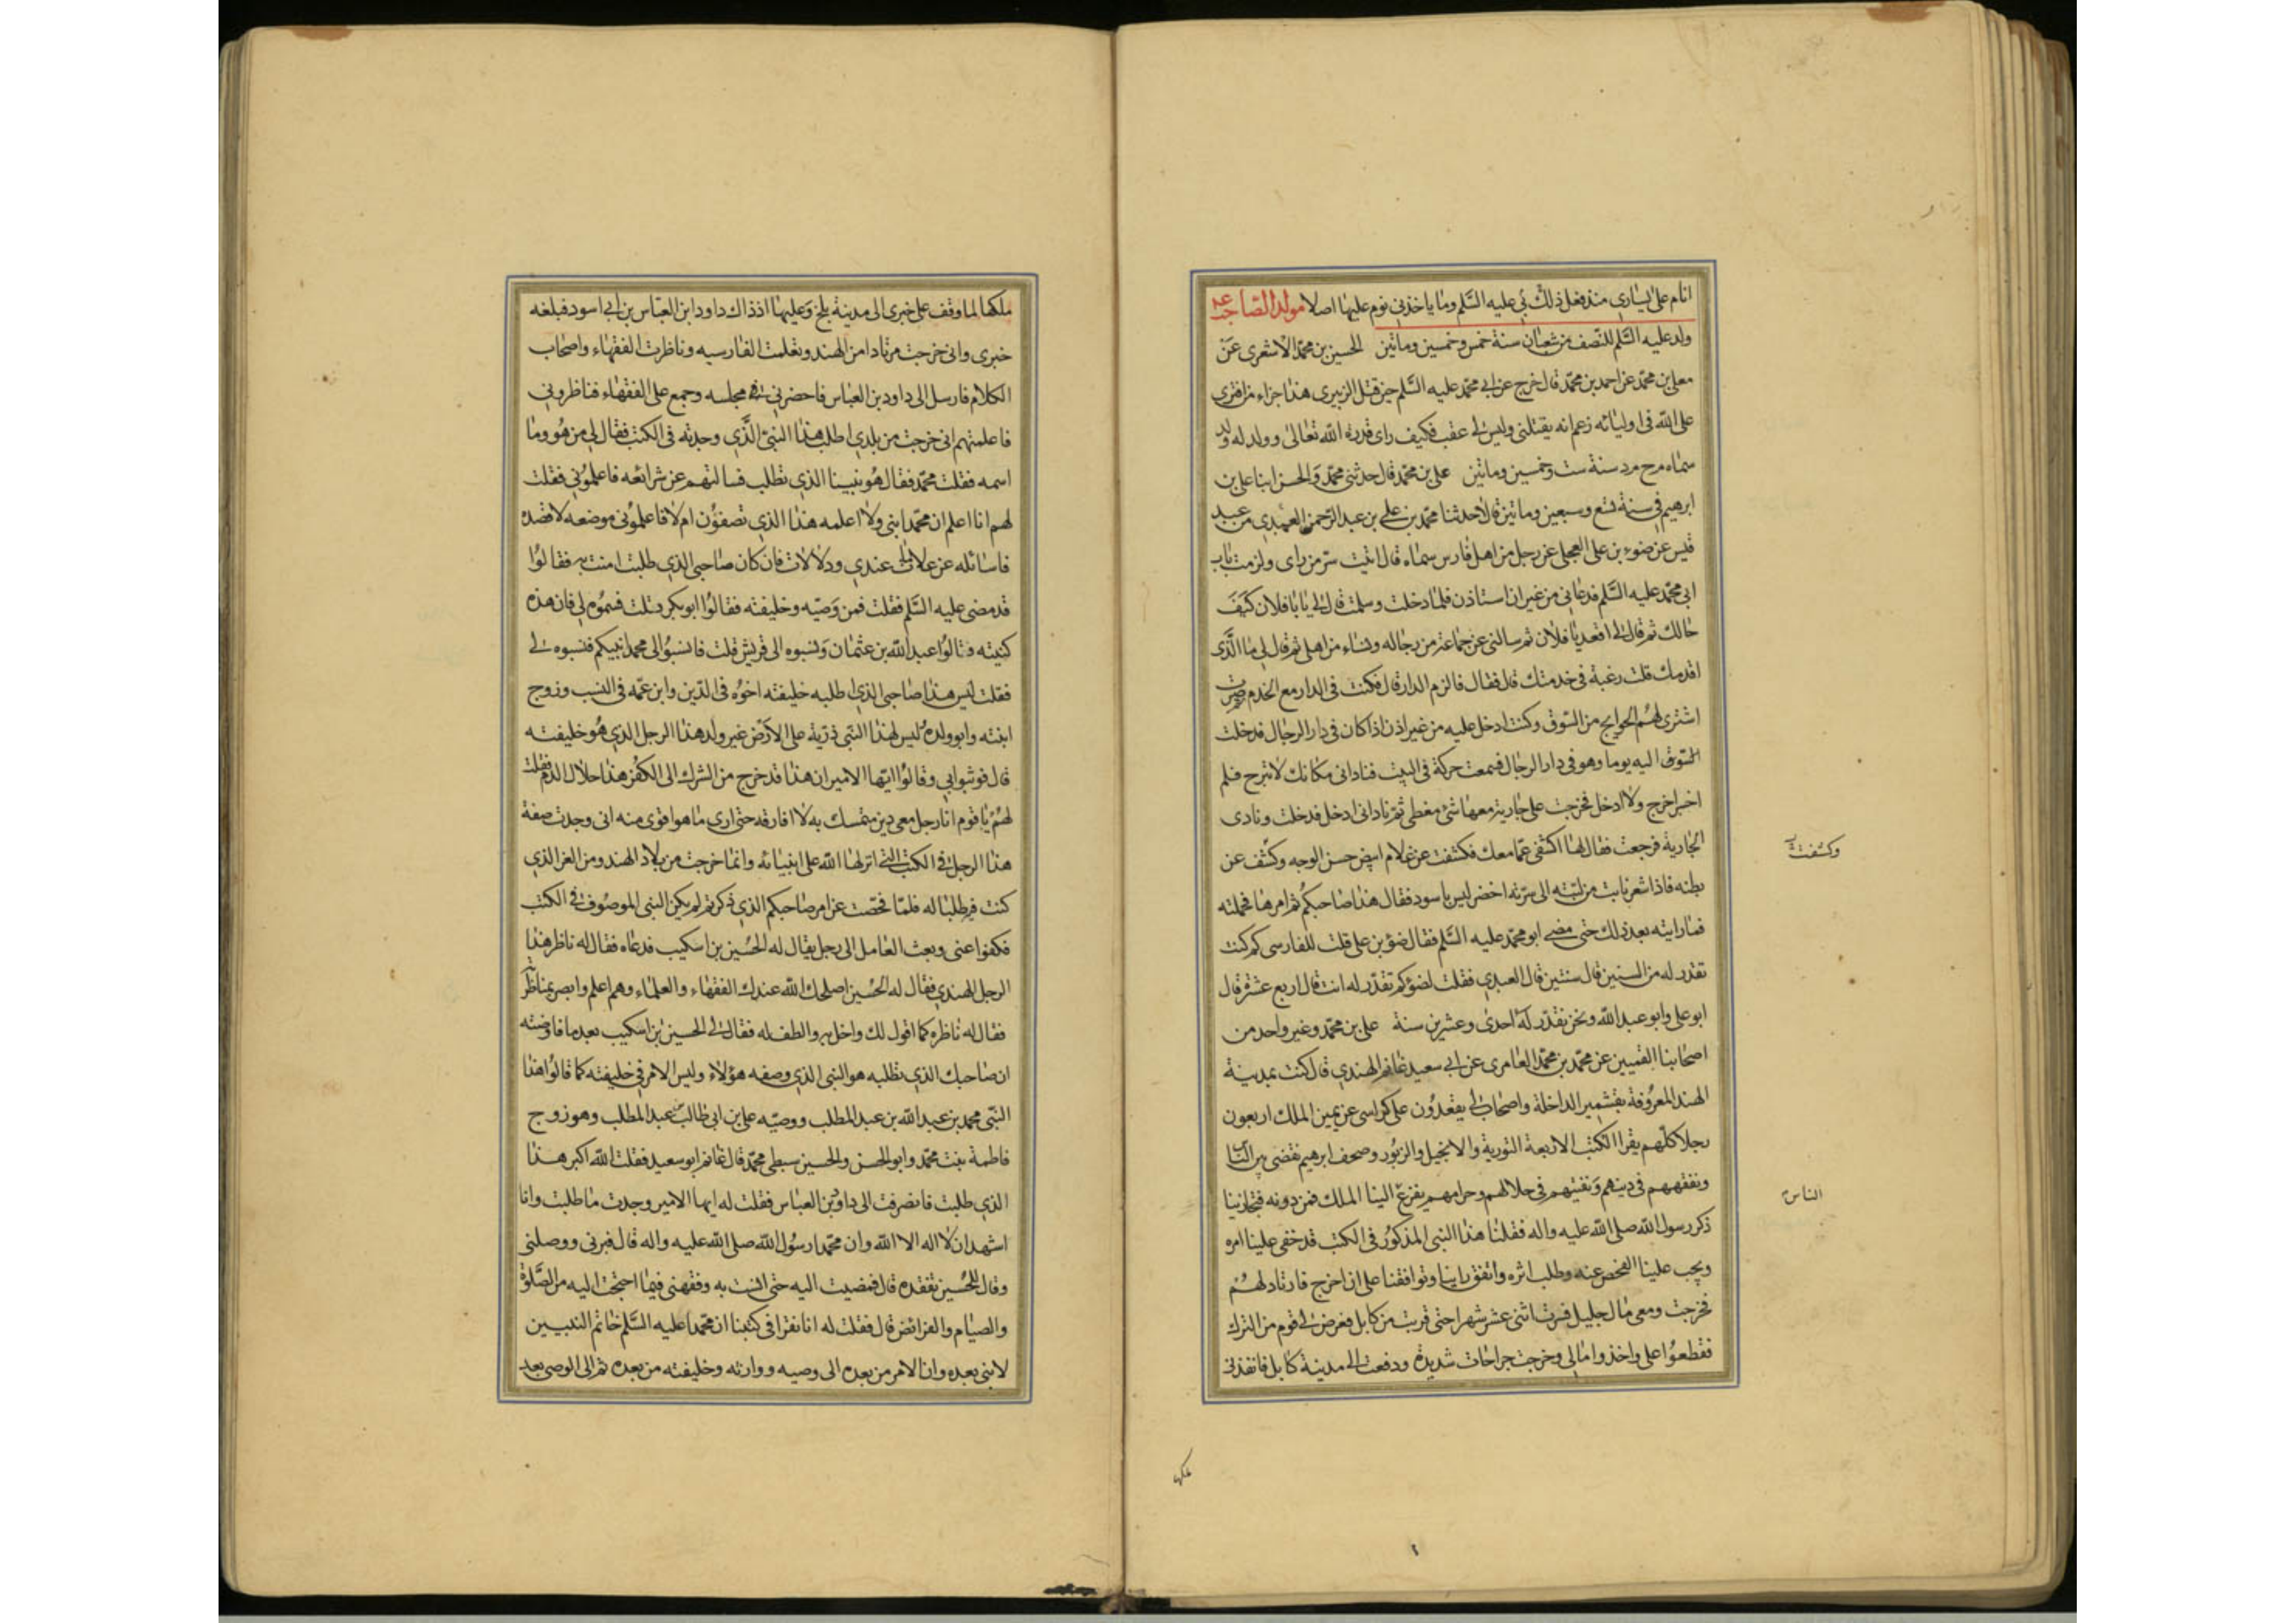 انام على يسارى منذ فعل ذلك بى عليه السّلم وما ياخذنى نوم عليها اصلا مولد الصّاحب عم
ولد عليه السّلم للنّصف من شعبان سنة خمس وخمسين وماتين الحسين بن محمّد الاشعرى عن
معلى بن محمّد عن احمد بن محمّد قال خرج عن ابى محمّد عليه السّلم حين قتل الزبيرى هذا جزاء من افترى
على الله فى اوليائه زعم انه يقتلنى وليس لى عقب فكيف راى قدرة الله تعالى وولد له ولد
سماه م ح م د سنة ست وخمسين وماتين على بن محمّد قال حدثنى محمّد والحسن ابنا على بن
ابرهيم فى سنة تسع وسبعين وماتين قالا حدثنا محمّد بن على بن عبد الرّحمن العبدى من عبد
قيس عن ضوء بن على العجلى عن رجل من اهل فارس سماه قال اتيت سرّ من راى ولزمت باب
ابى محمّد عليه السّلم فدعانى من غير ان استاذن فلما دخلت وسلمت قال لى يا با فلان كيف
حالك ثم قال لى اقعد يا فلان ثم سالنى عن جماعة من رجال ونساء من اهلى ثم قال لى ما الّذى
اقدمك قلت رغبة فى خدمتك قال فقال فالزم الدار قال فكنت فى الدار مع الخدم ثم صرت
اشترى لهم الحوايج من السّوق وكنت ادخل عليه من غير اذن اذا كان فى دار الرجال فدخلت
اليه يوما وهو فى دار الرجال فسمعت حركة فى البيت فنادانى مكانك لا تبرح فلم
اخرج ولا ادخل فخرجت على جارية معها شئ مغطى ثمّ نادانى ادخل فدخلت ونادى
الجارية فرجعت فقال لها اكشفى عمّا معك فكشفت عن غلام ابيض حسن الوجه وكشف عن
بطنه فاذا شعر نابت من لبّته الى سرّته اخضر ليس باسود فقال هذا صاحبكم ثم امرها فحملته
فما رايته بعد ذلك حتى مضى ابو محمّد عليه السّلم فقال ضوء بن على قلت للفارسى كم كنت
تقدر له من السنين قال سنتين قال العبدى فقلت لضوء كم تقدّر له انت قال اربع عشرة قال
ابو على وابو عبد الله ونحن نقدّر له احدى وعشرين سنة على بن محمّد وغير واحد من
اصحابنا القميين عن محمّد بن محمّد العامرى عن ابى سعيد غانم الهندى قال كنت بمدينة
الهند المعروفة بقشمير الداخلة واصحاب لى يقعدون على كراسى عن يمين الملك اربعون
رجلا كلّهم يقرا الكتب الاربعة التورية والانجيل والزبور وصحف ابرهيم نقضى بين الناس
ونفقههم فى دينهم ونفتيهم فى حلالهم وحرامهم يفزع الينا الملك فمن دونه فتجارينا
ذكر رسول الله صلى الله عليه واله فقلنا هذا النبى المذكور فى الكتب قد خفى علينا امره
ويجب علينا الفحص عنه وطلب اثره واتفق راينا وتوافقنا على ان اخرج فارتاد لهم
فخرجت ومعى مال جليل فسرت اثنى عشر شهرا حتى قربت من كابل فعرض لى قوم من الترك
فقطعوا على واخذوا مالى وخرجت جراحات شديدة ودفعت الى مدينة كابل فانفذنى
وكشفت
الناس
ملكها
ملكها لما وقف على خبرى الى مدينة بلخ وعليها اذ ذاك داود ابن العبّاس بن ابى اسود فبلغه
خبرى وانى خرجت مرتادا من الهند وتعلمت الفارسيه وناظرت الفقهاء واصحاب
الكلام فارسل الى داود بن العباس فاحضرنى مجلسه وجمع على الفقهاء فناظرونى
فاعلمتهم انى خرجت من بلدى اطلب هذا النبىّ الّذى وجدته فى الكتب فقال لى من هو وما
اسمه فقلت محمّد فقال هو نبينا الذى تطلب فسالتهم عن شرائعه فاعلمونى فقلت
لهم انا اعلم ان محمّدا نبى ولا اعلمه هذا الذى تصفون ام لا فاعلمونى موضعه لاقصده
فاسائله عن علامات عندى ودلالات فان كان صاحبى الذى طلبت امنت به فقالوا
قد مضى عليه السّلم فقلت فمن وصيّه وخليفته فقالوا ابوبكر قلت فسموه لى فان هذه
كنيته قالوا عبد الله بن عثمان ونسبوه الى قريش قلت فانسبوا الى محمدا نبيكم فنسبوه لى
فقلت ليس هذا صاحبى الذى اطلبه خليفته اخوه فى الدّين وابن عمّه فى النسب وزوج
ابنته وابو ولده ليس لهذا النبّى ذرّية على الارض غير ولد هذا الرجل الذى هو خليفته
قال فوثبوا بى وقالوا ايّها الامير ان هذا قد خرج من الشرك الى الكفر هذا حلال الدم فقلت
لهم يا قوم انا رجل معى دين متمسك به لا افارقه حتى ارى ما هو اقوى منه انى وجدت صفة
هذا الرجل فى الكتب التى انزلها الله على انبيائه وانما خرجت من بلاد الهند ومن العز الذى
كنت فيه طلبا له فلمّا فحّصت عن امر صاحبكم الذى ذكرتم لم يكن النبى الموصوف فى الكتب
فكفوا عنى وبعث العامل الى رجل يقال له الحسين بن اسكيب فدعاه فقال له ناظر هذا
الرجل الهندى فقال له الحسين اصلحك الله عندك الفقهاء والعلماء وهم اعلم وابصر بمناظرته
فقال له ناظره كما اقول لك واخل به والطف له فقال لى الحسين بن اسكيب بعد ما فاوضته
ان صاحبك الذى تطلبه هو النبى الذى وصفه هؤلاء وليس الامر فى خليفته كما قالوا هذا
النبّى محمد بن عبد الله بن عبد المطلب ووصيّه على بن ابى طالب بن عبد المطلب وهو زوج
فاطمة بنت محمّد وابو الحسن والحسين سبطى محمّد قال غانم ابو سعيد فقلت الله اكبر هذا
الذى طلبت فانصرفت الى داود بن العباس فقلت له ايها الامير وجدت ما طلبت وانا
اشهد ان لا اله الا الله وان محمّدا رسول الله صلى الله عليه واله قال فبرنى ووصلنى
وقال للحسين تفقده قال فمضيت اليه حتى انست به وفقهنى فيما احتجت اليه من الصّلوة
والصيام والفرائض قال فقلت له انا نقرا فى كتبنا ان محمّدا عليه السّلم خاتم النبيين
لا نبى بعده وان الامر من بعده الى وصيه ووارثه وخليفته من بعده ثم الى الوصى بعد